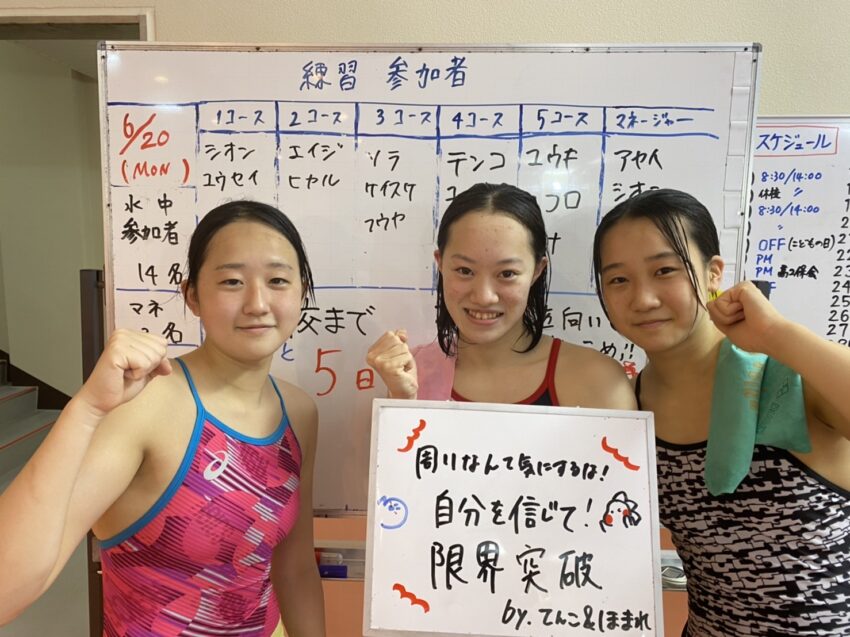 練習 参加者
6/20
(MON)
1コース
2コース
3コース
4コース
5コース
マネージャー
シオン
ユウセイ
エイジ
ヒヤル
ソラ
ケイスケ
フウヤ
テンコ
ユウキ
コロ
アヤイ
シオニ
水中
参加者
14名
マネ
名
まで
と
5日
向い
スケジュール
8:30/14:00
休校 〃
8:30/14:00
OFF(こどもの日)
PM
PM
24
25
26
27
周りなんて気にするな!
自分を信じて!
限界突破
by. てんこ&ほまれ